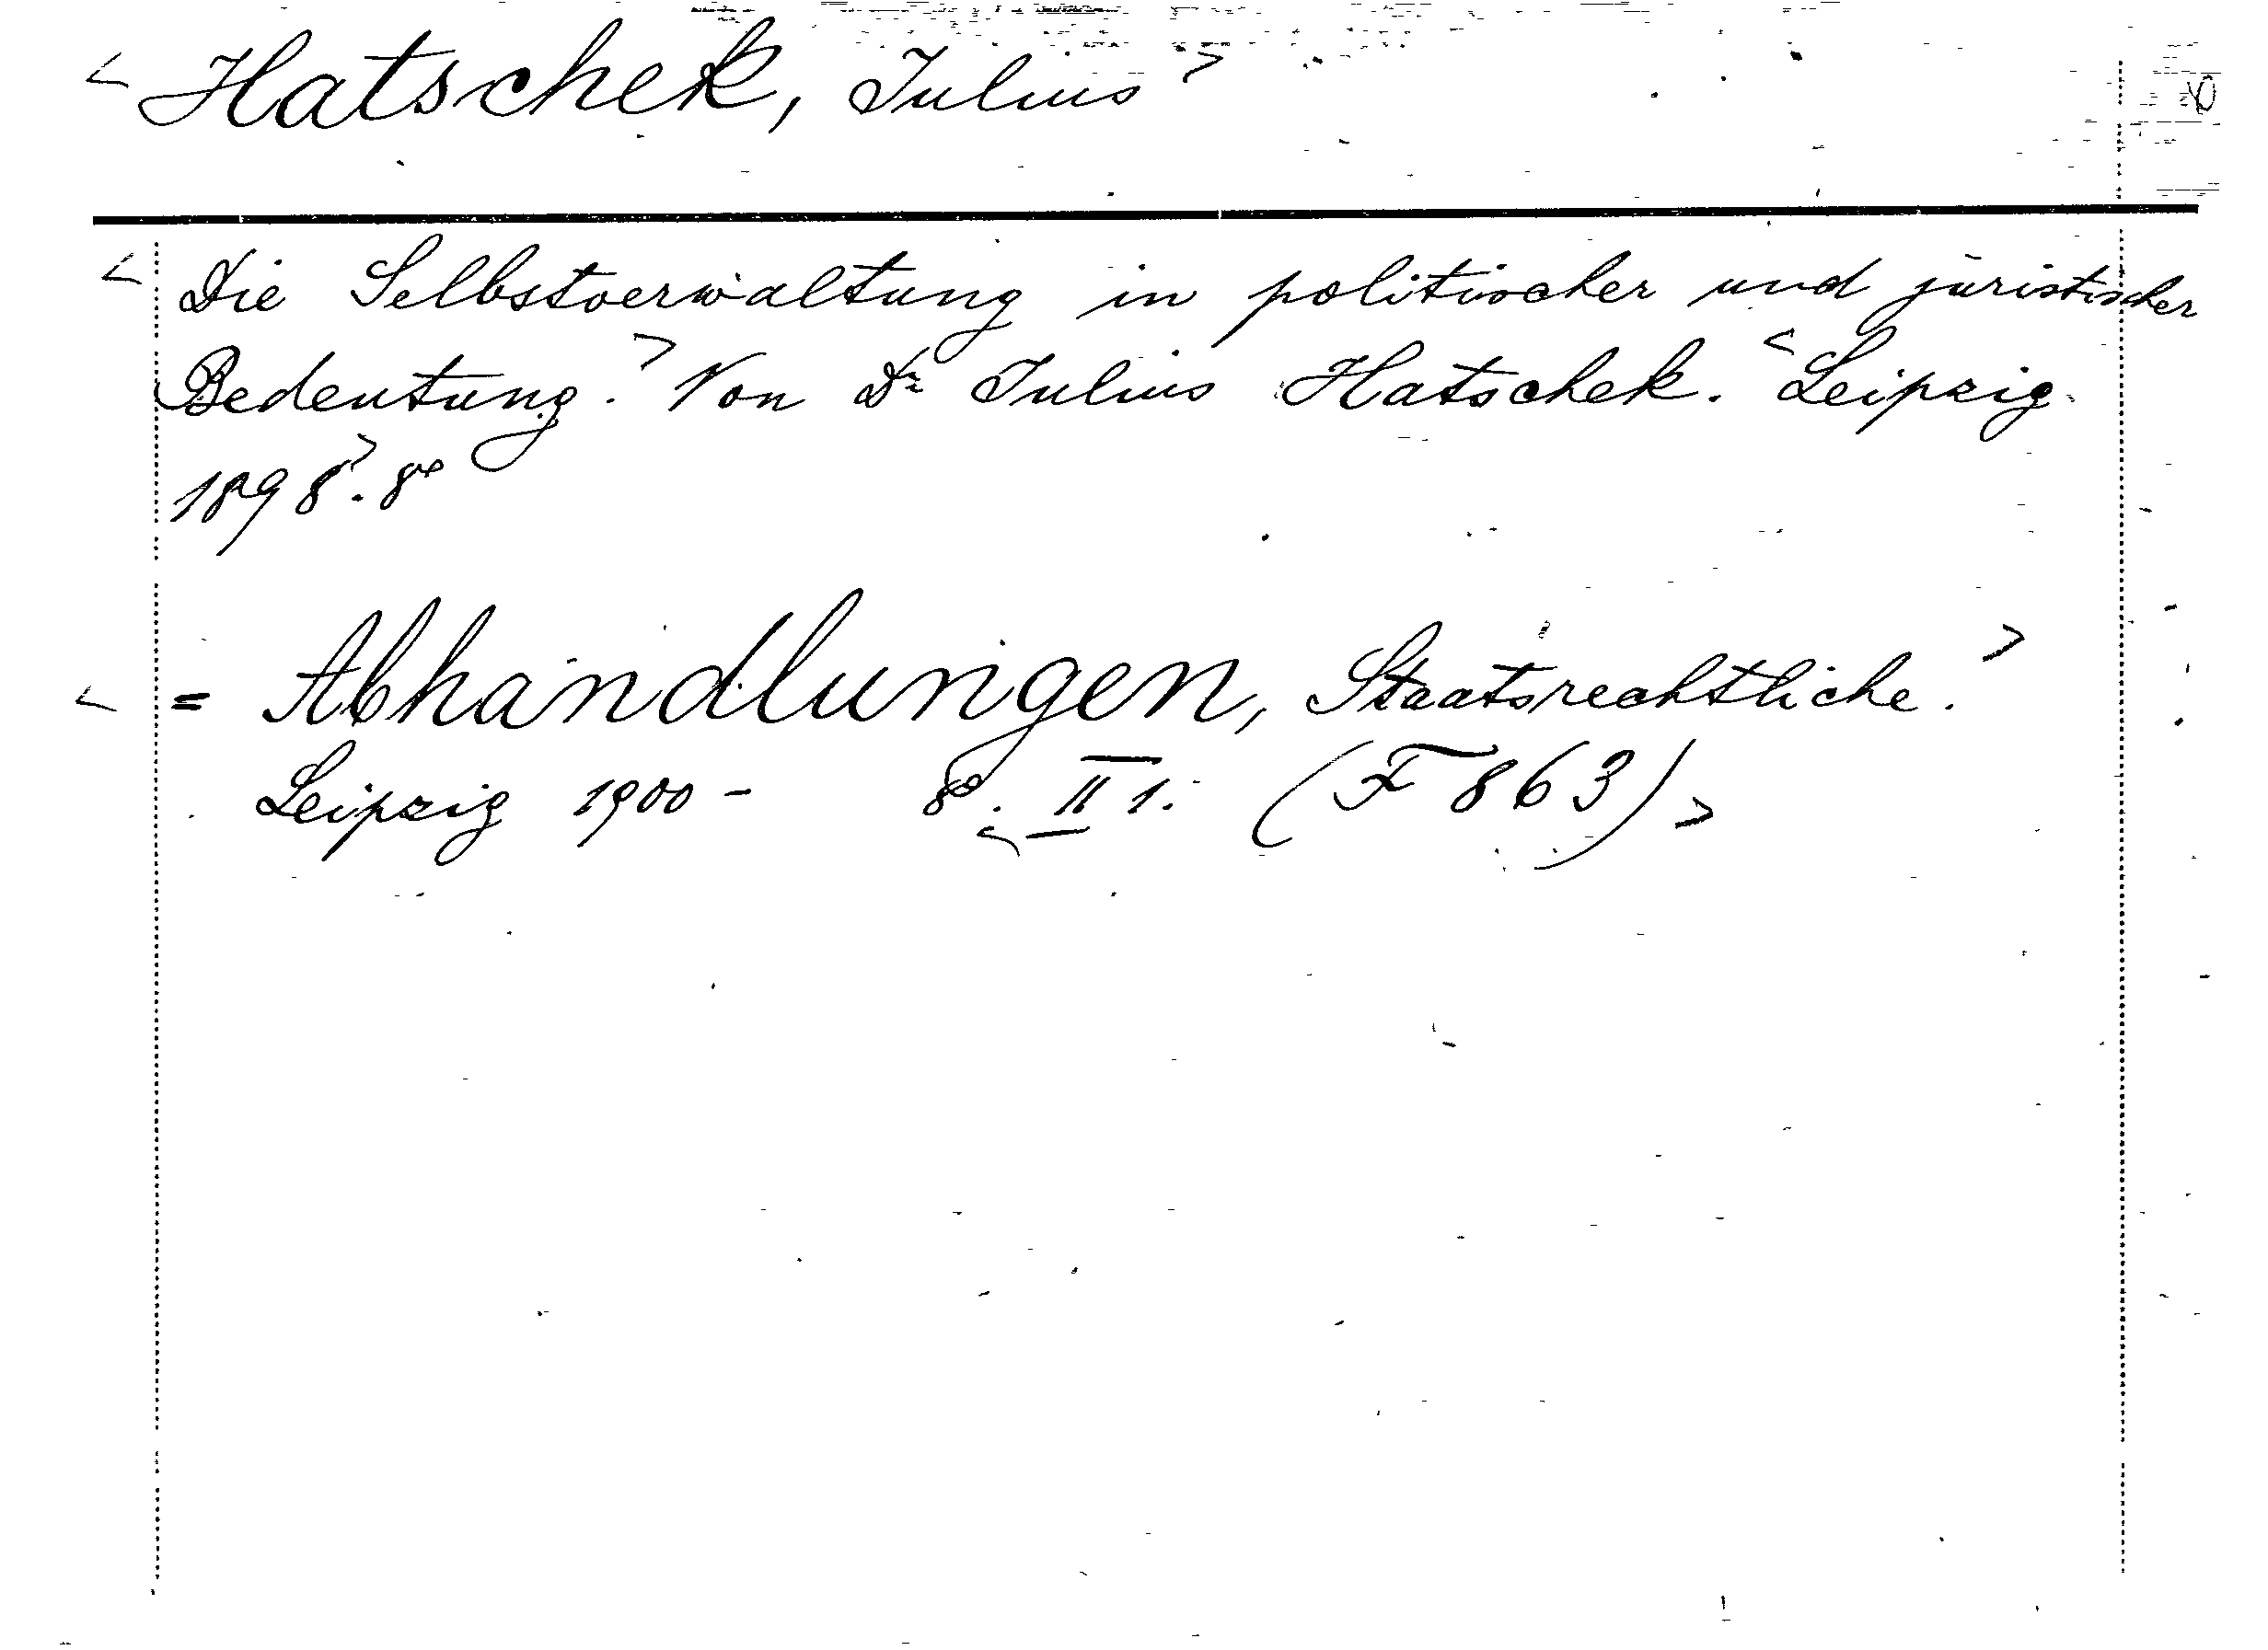 < Hatschek, Julius >
< Die Selbstverwaltung in politischer und juristischer
Bedeutung. > Von Dr Julius Hatschek. < Leipzig
1898 >. 8o
< = Abhandlungen, Staatsrechtliche. >
Leipzig 1900 - 8o. < II 1. (F 863) >